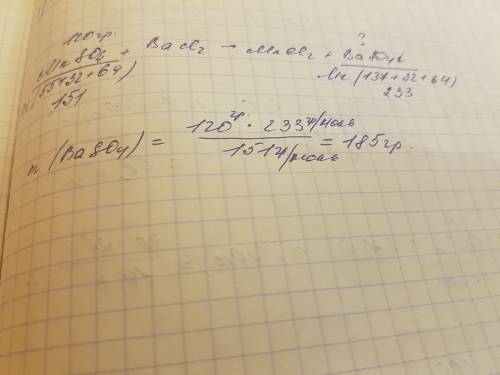 120 гр. ?
MnSO4 + BaCl2 → MnCl2 + BaSO4↓
(55+32+64) Mr (137+32+64)
151 233
m (BaSO4) = 120 гр · 233 г/моль / 151 г/моль = 185 гр.